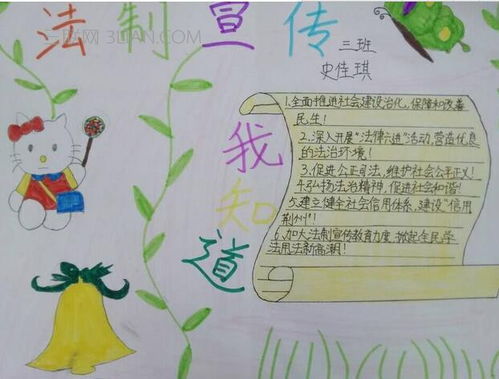 法制宣传
三班
史佳琪
我知道
1.全面推进社会建设治化,保障和改善
民生!
2.深入开展"法律六进"活动,营造优良
的法治环境!
3.促进公正司法,维护社会公平正义!
4.弘扬法治精神,促进社会和谐!
5.建立健全社会信用体系,建设"信用
荆州"!
6.加大法制宣传教育力度,掀起全民学
法用法新高潮!